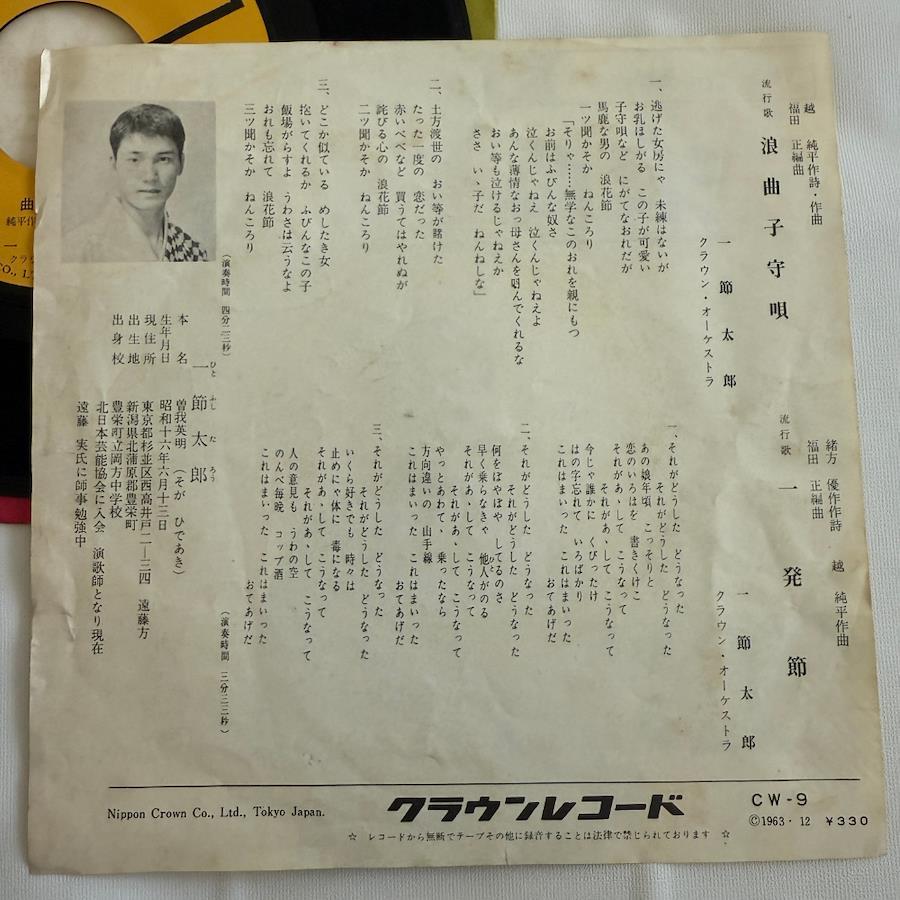 越 純平作詩・作曲
福田 正編曲
流行歌 浪曲子守唄
一節太郎
クラウン・オーケストラ
一、逃げた女房にゃ 未練はないが
お乳ほしがる この子が可愛い
子守唄など にがてなおれだが
馬鹿な男の 浪花節
一ツ聞かそか ねんころり
「そりゃ……無学なこのおれを親にもつ
お前はふびんな奴さ
泣くんじゃねえ 泣くんじゃねえよ
あんな薄情なおっ母さんを呼んでくれるな
おい等も泣けるじゃねえか
ささ いゝ子だ ねんねしな」
二、土方渡世の おい等が賭けた
たった一度の 恋だった
赤いべべなど 買うてはやれぬが
詫びる心の 浪花節
二ツ聞かそか ねんころり
三、どこか似ている めしたき女
抱いてくれるか ふびんなこの子
飯場がらすよ うわさは云うなよ
おれも忘れて 浪花節
三ツ聞かそか ねんころり
(演奏時間 四分二三秒)
緒方 優作作詩
越 純平作曲
福田 正編曲
流行歌 一発節
一節太郎
クラウン・オーケストラ
一、それがどうした どうなった
それがどうした どうなった
あの娘年頃 こっそりと
恋のいろはを 書きくけこ
それがあゝして こうなって
それがあゝして こうなって
今じゃ誰かに くびったけ
はの字忘れて いろばかり
これはまいった これはまいった
おてあげだ
二、それがどうした どうなった
それがどうした どうなった
何をぼやぼや してるのさ
早く乗らなきゃ 他人がのる
それがあゝして こうなって
それがあゝして こうなって
やっとあわて、乗ったなら
方向違いの 山手線
これはまいった これはまいった
おてあげだ
三、それがどうした どうなった
それがどうした どうなった
いくら好きでも 時々は
止めにゃ体に 毒になる
それがあゝして こうなって
それがあゝして こうなって
人の意見も うわの空
のんべ毎晩 コップ酒
これはまいった これはまいった
おてあげだ
(演奏時間 三分三三秒)
一節太郎
ひと ふし た ろう
本名 曽我英明 (そが ひであき)
生年月日 昭和十六年六月十三日
現住所 東京都杉並区西高井戸二—三四 遠藤方
出生地 新潟県北蒲原郡豊栄町
出身校 豊栄町立岡方中学校
北日本芸能協会に入会 演歌師となり現在
遠藤 実氏に師事勉強中
Nippon Crown Co., Ltd., Tokyo Japan.
クラウンレコード
CW-9
©1963・12 ¥330
☆ レコードから無断でテープその他に録音することは法律で禁じられております ☆
曲
純平作
一
クラウ
CO., L